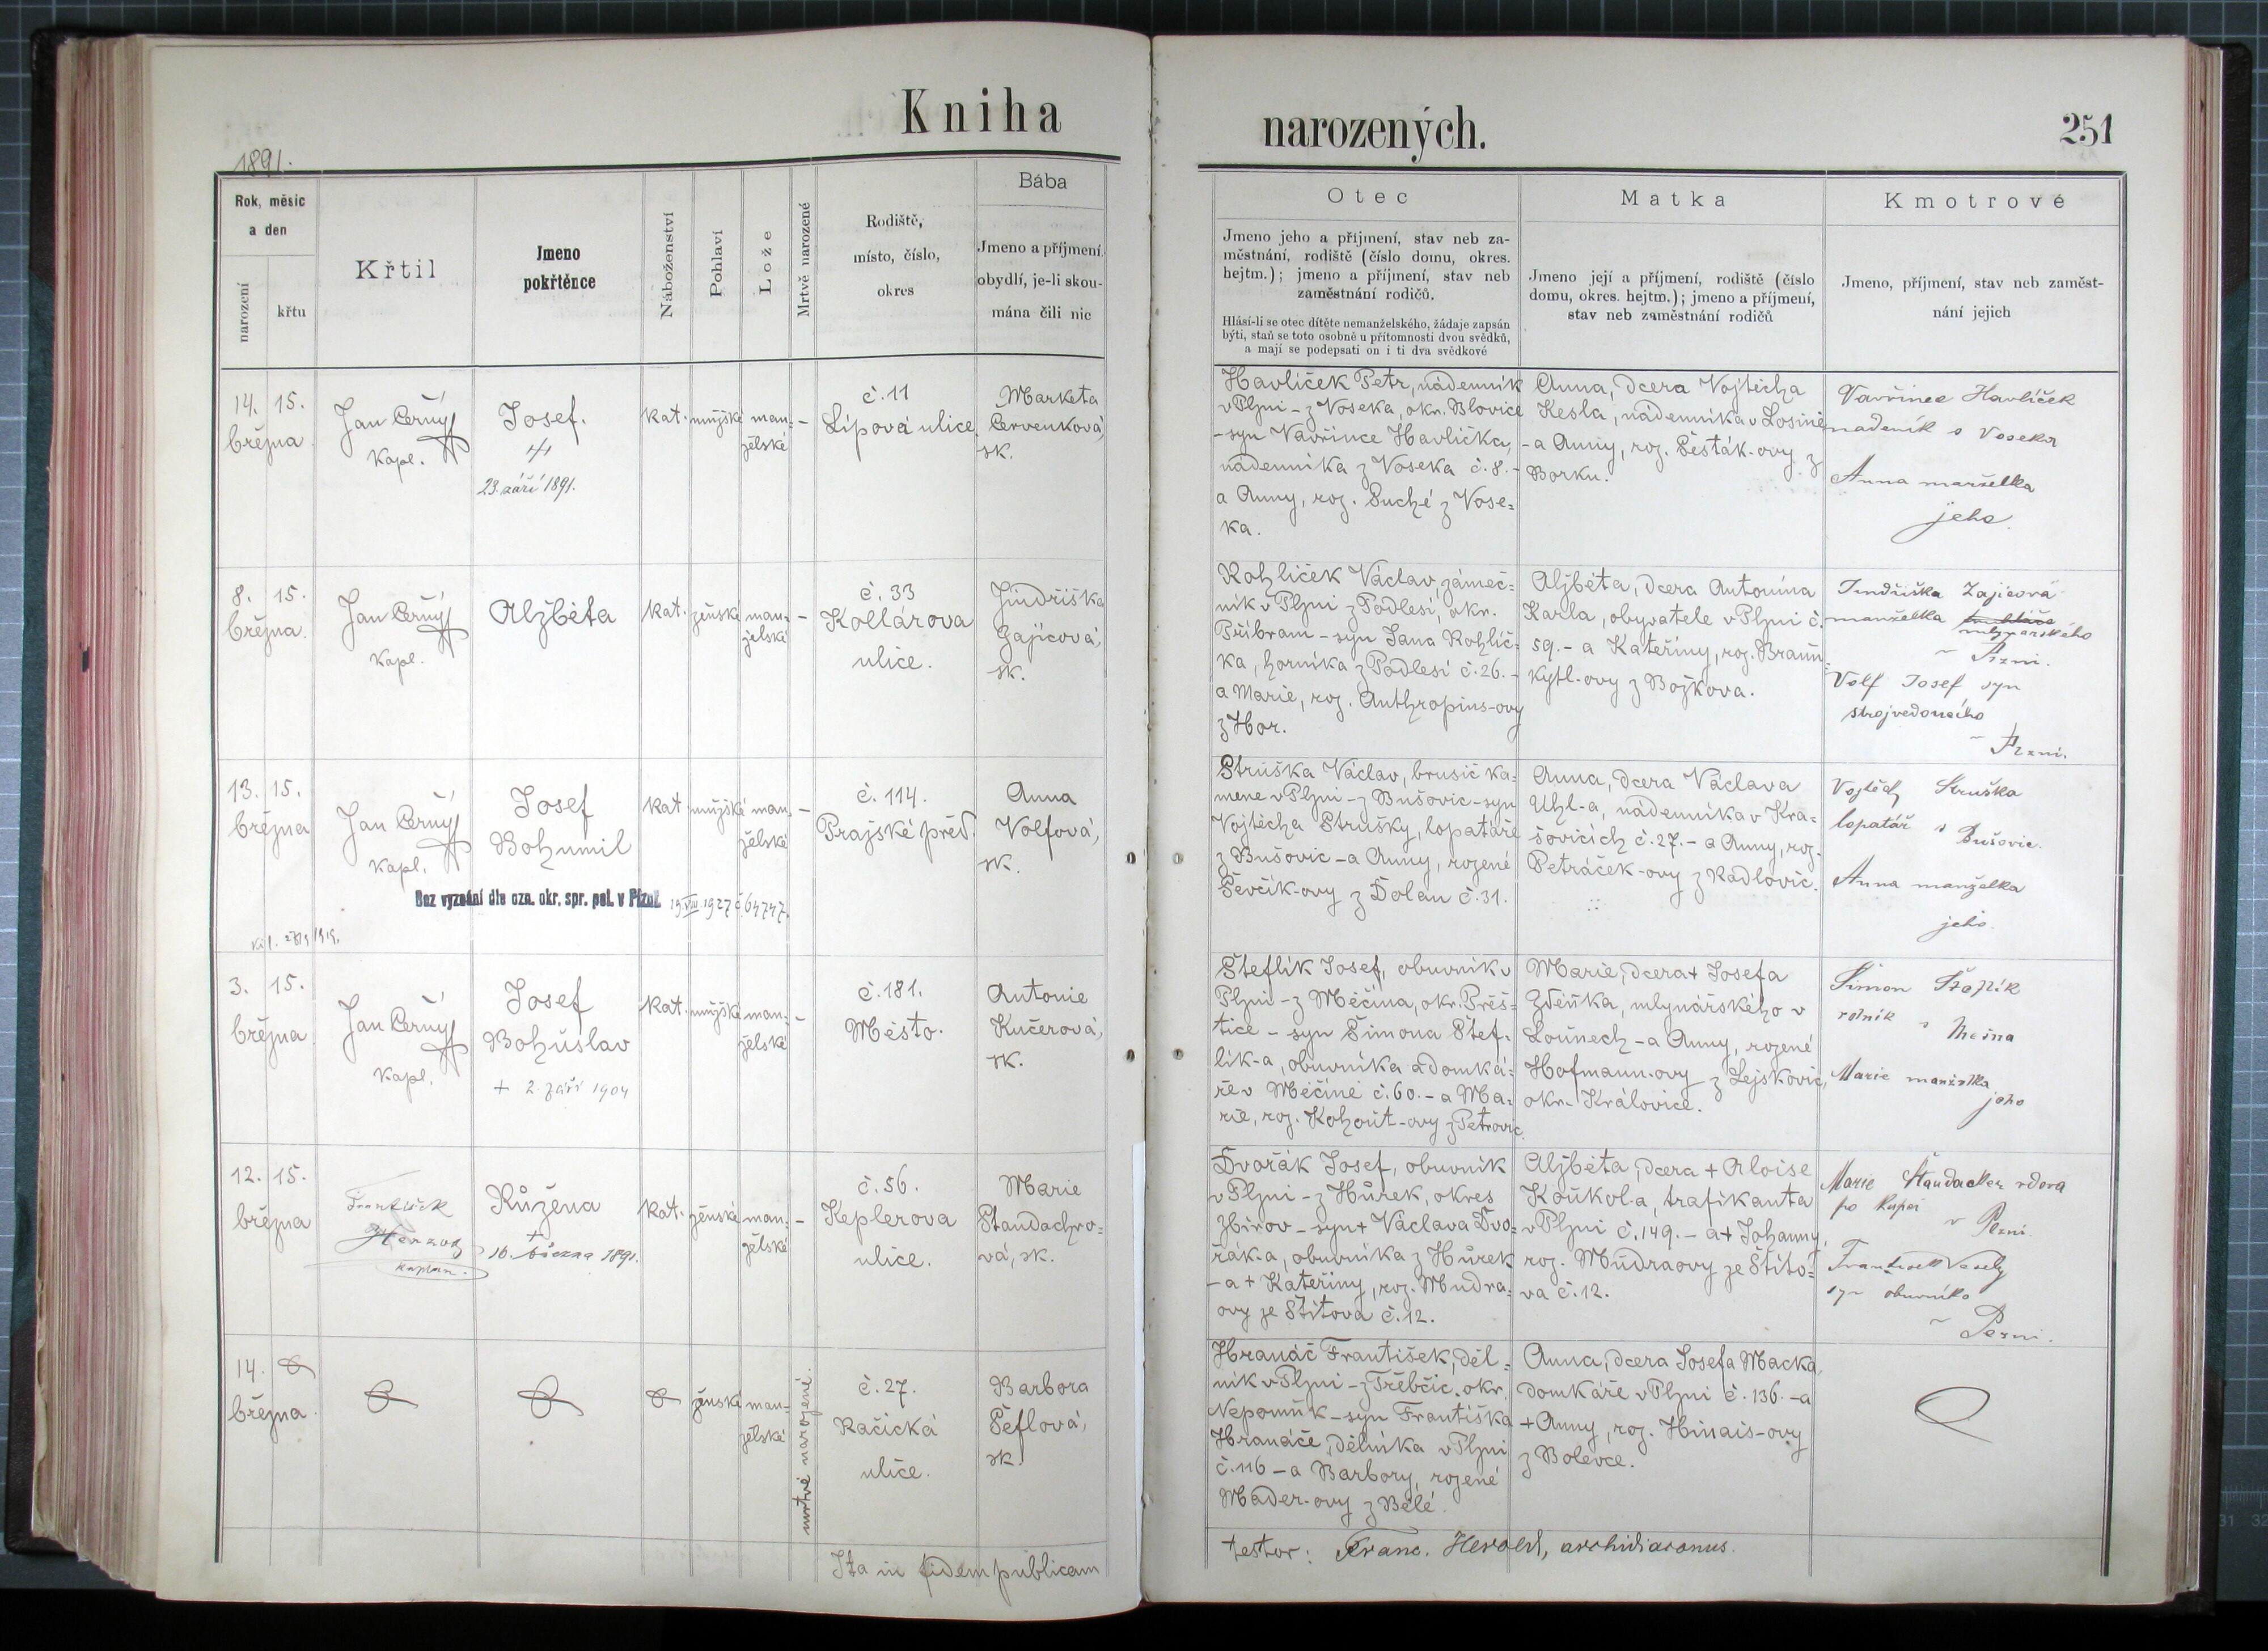 Kniha
narozených.
251
1891.
Rok, měsíc
a den
narození
křtu
Křtil
Jmeno
pokřtěnce
Náboženství
Pohlaví
Lože
Mrtvě narozené
Rodiště,
místo, číslo,
okres
Bába
Jmeno a příjmení,
obydlí, je-li skou-
mána čili nic
Otec
Jmeno jeho a příjmení, stav neb za-
městnání, rodiště (číslo domu, okres.
hejtm.); jmeno a příjmení, stav neb
zaměstnání rodičů.
Hlásí-li se otec dítěte nemanželského, žádaje zapsán
býti, staň se toto osobně u přítomnosti dvou svědků,
a mají se podepsati on i ti dva svědkové
Matka
Jmeno její a příjmení, rodiště (číslo
domu, okres. hejtm.); jmeno a příjmení,
stav neb zaměstnání rodičů
Kmotrové
Jmeno, příjmení, stav neb zaměst-
nání jejich
14. 15.
března
Jan Černý
kapl.
Josef.
23. září 1891.
kat.
mužské
man-
želské
–
č. 11
Lípová ulice.
Marketa
Červenková,
sk.
Havlíček Petr, nádenník
v Plzni – z Voseka, okr. Blovice
– syn Vavřince Havlíčka,
nádenníka z Voseka č. 8. –
a Anny, roz. Suché z Vose=
ka.
Anna, dcera Vojtěcha
Kesla, nádenníka v Losině
– a Anny, roz. Šesták-ovy z
Borku.
Vavřinec Havlíček
nadeník z Voseka
Anna manželka
jeho.
8. 15.
března.
Jan Černý
kapl.
Alžběta
kat.
ženské
man-
želské
–
č. 33
Kollárova
ulice.
Jindřiška
Zajícová,
sk.
Rohlíček Václav, zámeč=
ník v Plzni z Podlesí, okr.
Příbram – syn Jana Rohlíč=
ka, horníka z Podlesí č. 26. –
a Marie, roz. Anthropius-ovy
z Hor.
Alžběta, dcera Antonína
Karla, obyvatele v Plzni č.
59. – a Kateřiny, roz. Braun
kytl-ovy z Božkova.
Jindřiška Zajicová
manželka
mlynářského
v Plzni.
Volf Josef syn
strojvedoucího
v Plzni.
13. 15.
března
Jan Černý
kapl.
Josef
Bohumil
kat.
mužské
man-
želské
–
č. 114.
Pražské před.
Anna
Volfová,
sk.
Bez vyznání dle ozn. okr. spr. pol. v Plzni. 19/VIII. 1927 č. 64747.
Struska Václav, brusič ka=
mene v Plzni – z Bušovic – syn
Vojtěcha Strusky, lopatáře
z Bušovic – a Anny, rozené
Ševčík-ovy z Dolan č. 31.
Anna, dcera Václava
Uhl-a, nádenníka v Kra=
šovicích č. 27. – a Anny, roz.
Petráček-ovy z Radlovic.
Vojtěch Struska
lopatář z Bušovic.
Anna manželka
jeho.
3. 15.
března
Jan Černý
kapl.
Josef
Bohuslav
+ 2. září 1904
kat.
mužské
man-
želské
–
č. 181.
Město.
Antonie
Kučerová,
sk.
Šteflík Josef, obuvník v
Plzni – z Měčína, okr. Přeš=
tice – syn Šimona Štef-
lík-a, obuvníka a domká=
ře v Měčíně č. 60. – a Ma=
rie, roz. Kohout-ovy z Petrovic.
Marie, dcera + Josefa
Zdeňka, mlynářského v
Lounech – a Anny, rozené
Hofmann-ovy z Lejskovic,
okr. Královice.
Šimon
rolník z
Marie manželka
jeho
12. 15.
března
František
Herzog
kaplan.
Růžena
+
16. března 1891.
kat.
ženské
man-
želské
–
č. 56.
Keplerova
ulice.
Marie
Štandachro=
vá, sk.
Dvořák Josef, obuvník
v Plzni – z Hůrek, okres
Zbirov – syn + Václava Dvo=
řáka, obuvníka z Hůrek
– a + Kateřiny, roz. Mudra=
ovy ze Štítova č. 12.
Alžběta, dcera + Aloise
Koukola, trafikanta
v Plzni č. 149. – a + Johanny,
roz. Mudraovy ze Štíto=
va č. 12.
Marie Štandacher vdova
po kupci
v Plzni.
František Veselý
syn obuvníka
v Plzni.
14.
března
ženské
man-
želské
mrtvě narozené.
č. 27.
Račická
ulice.
Barbora
Šeflová,
sk.
Hranáč František, děl=
ník v Plzni – z Třebčic, okr.
Nepomuk – syn Františka
Hranáče, dělníka v Plzni
č. 116 – a Barbory, rozené
Mader-ovy z Bělé.
Anna, dcera Josefa Macka,
domkáře v Plzni č. 136. – a
+ Anny, roz. Hinais-ovy
z Bolevce.
Ita in fidem publicam
testor: Franc. Herold, archidiaconus.